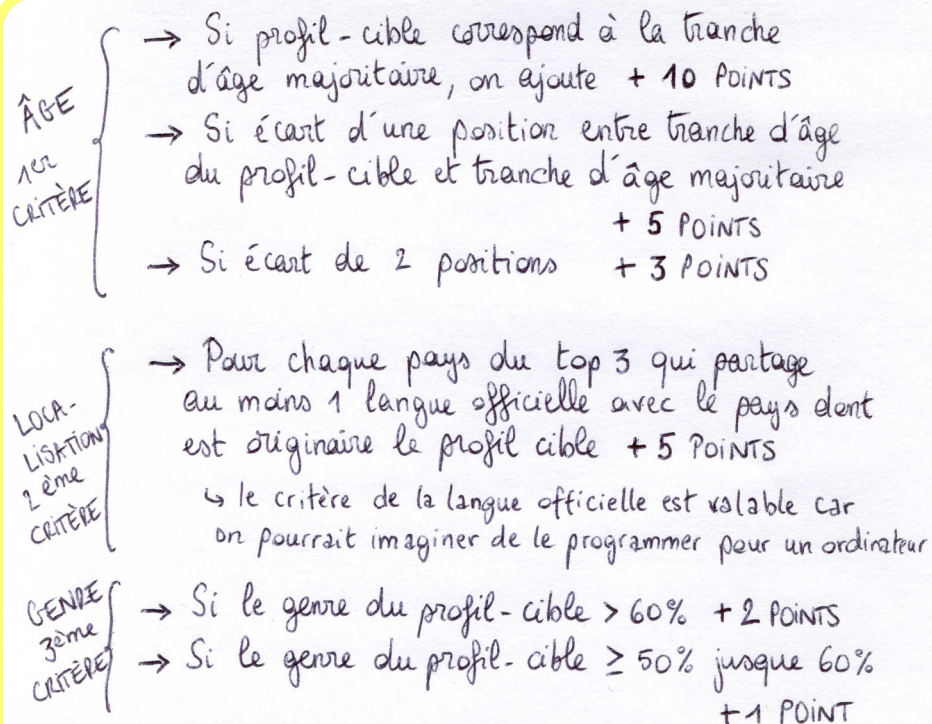 ÂGE
1er
CRITÈRE
→ Si profil-cible correspond à la tranche
d'âge majoritaire, on ajoute + 10 POINTS
→ Si écart d'une position entre tranche d'âge
du profil-cible et tranche d'âge majoritaire
+ 5 POINTS
→ Si écart de 2 positions + 3 POINTS
LOCA-
LISATION
2ème
CRITÈRE
→ Pour chaque pays du top 3 qui partage
au moins 1 langue officielle avec le pays dont
est originaire le profil cible + 5 POINTS
↳ le critère de la langue officielle est valable car
on pourrait imaginer de le programmer pour un ordinateur
GENRE
3ème
CRITÈRE
→ Si le genre du profil-cible > 60% + 2 POINTS
→ Si le genre du profil-cible ≥ 50% jusque 60%
+ 1 POINT